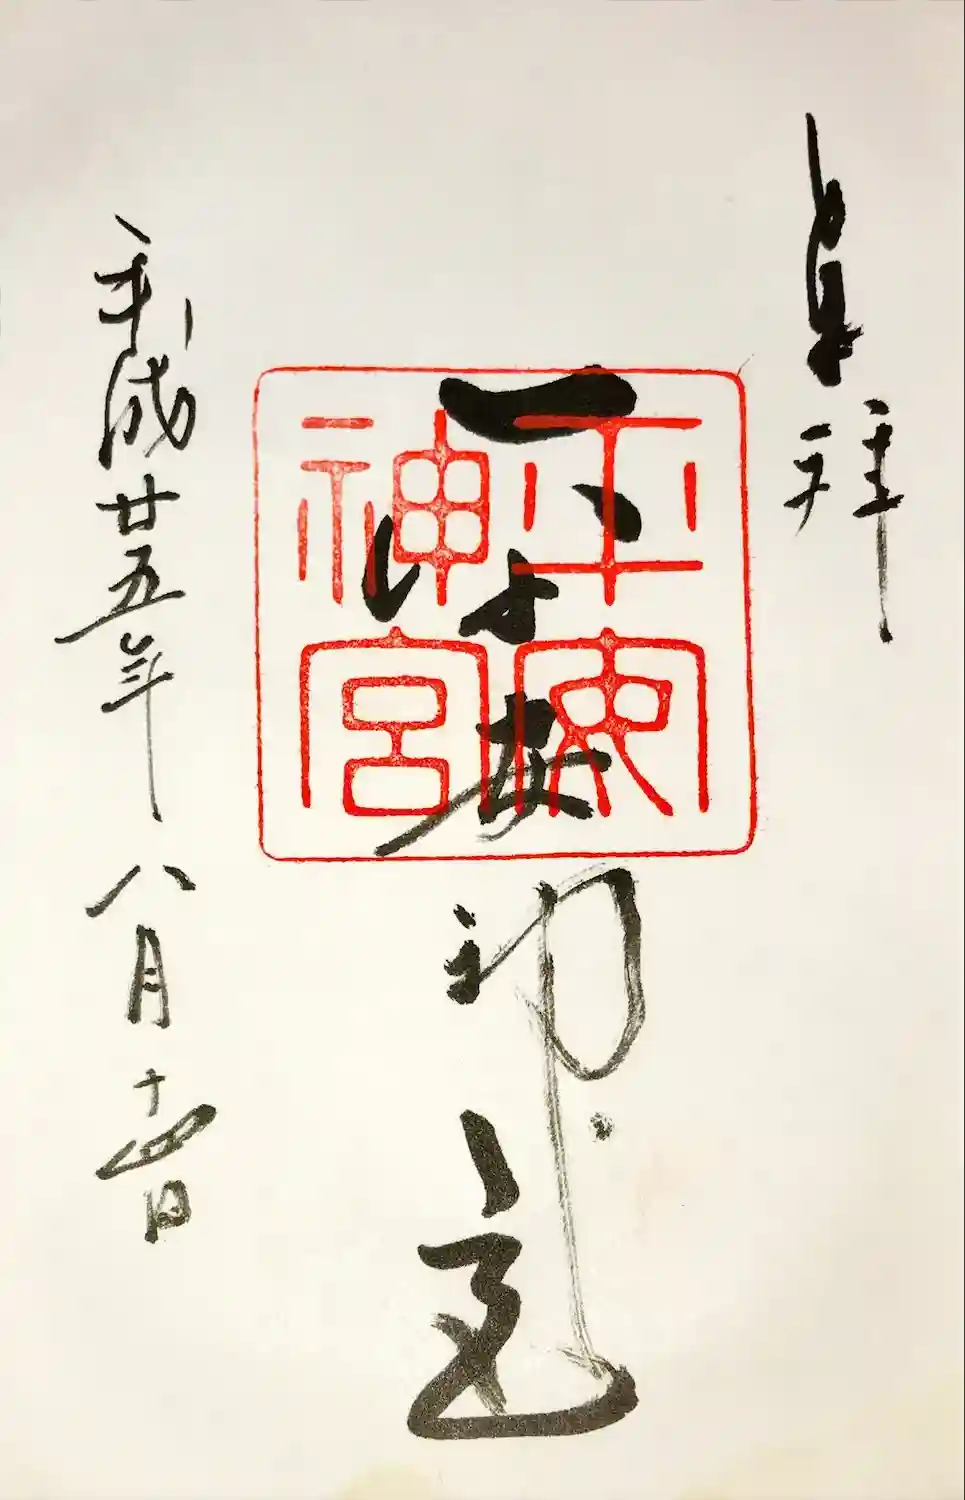 奉拝
平安神宮
平安神宮
平成廿五年八月十四日